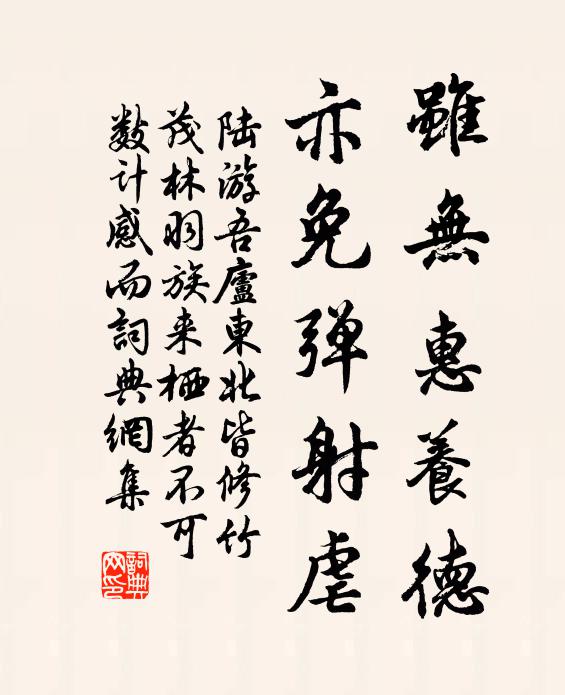 雖無惠養德
亦免弹射虐
陆游吾廬東北皆修竹
茂林羽族来栖者不可
数计感而詞典網集
詞典
网印